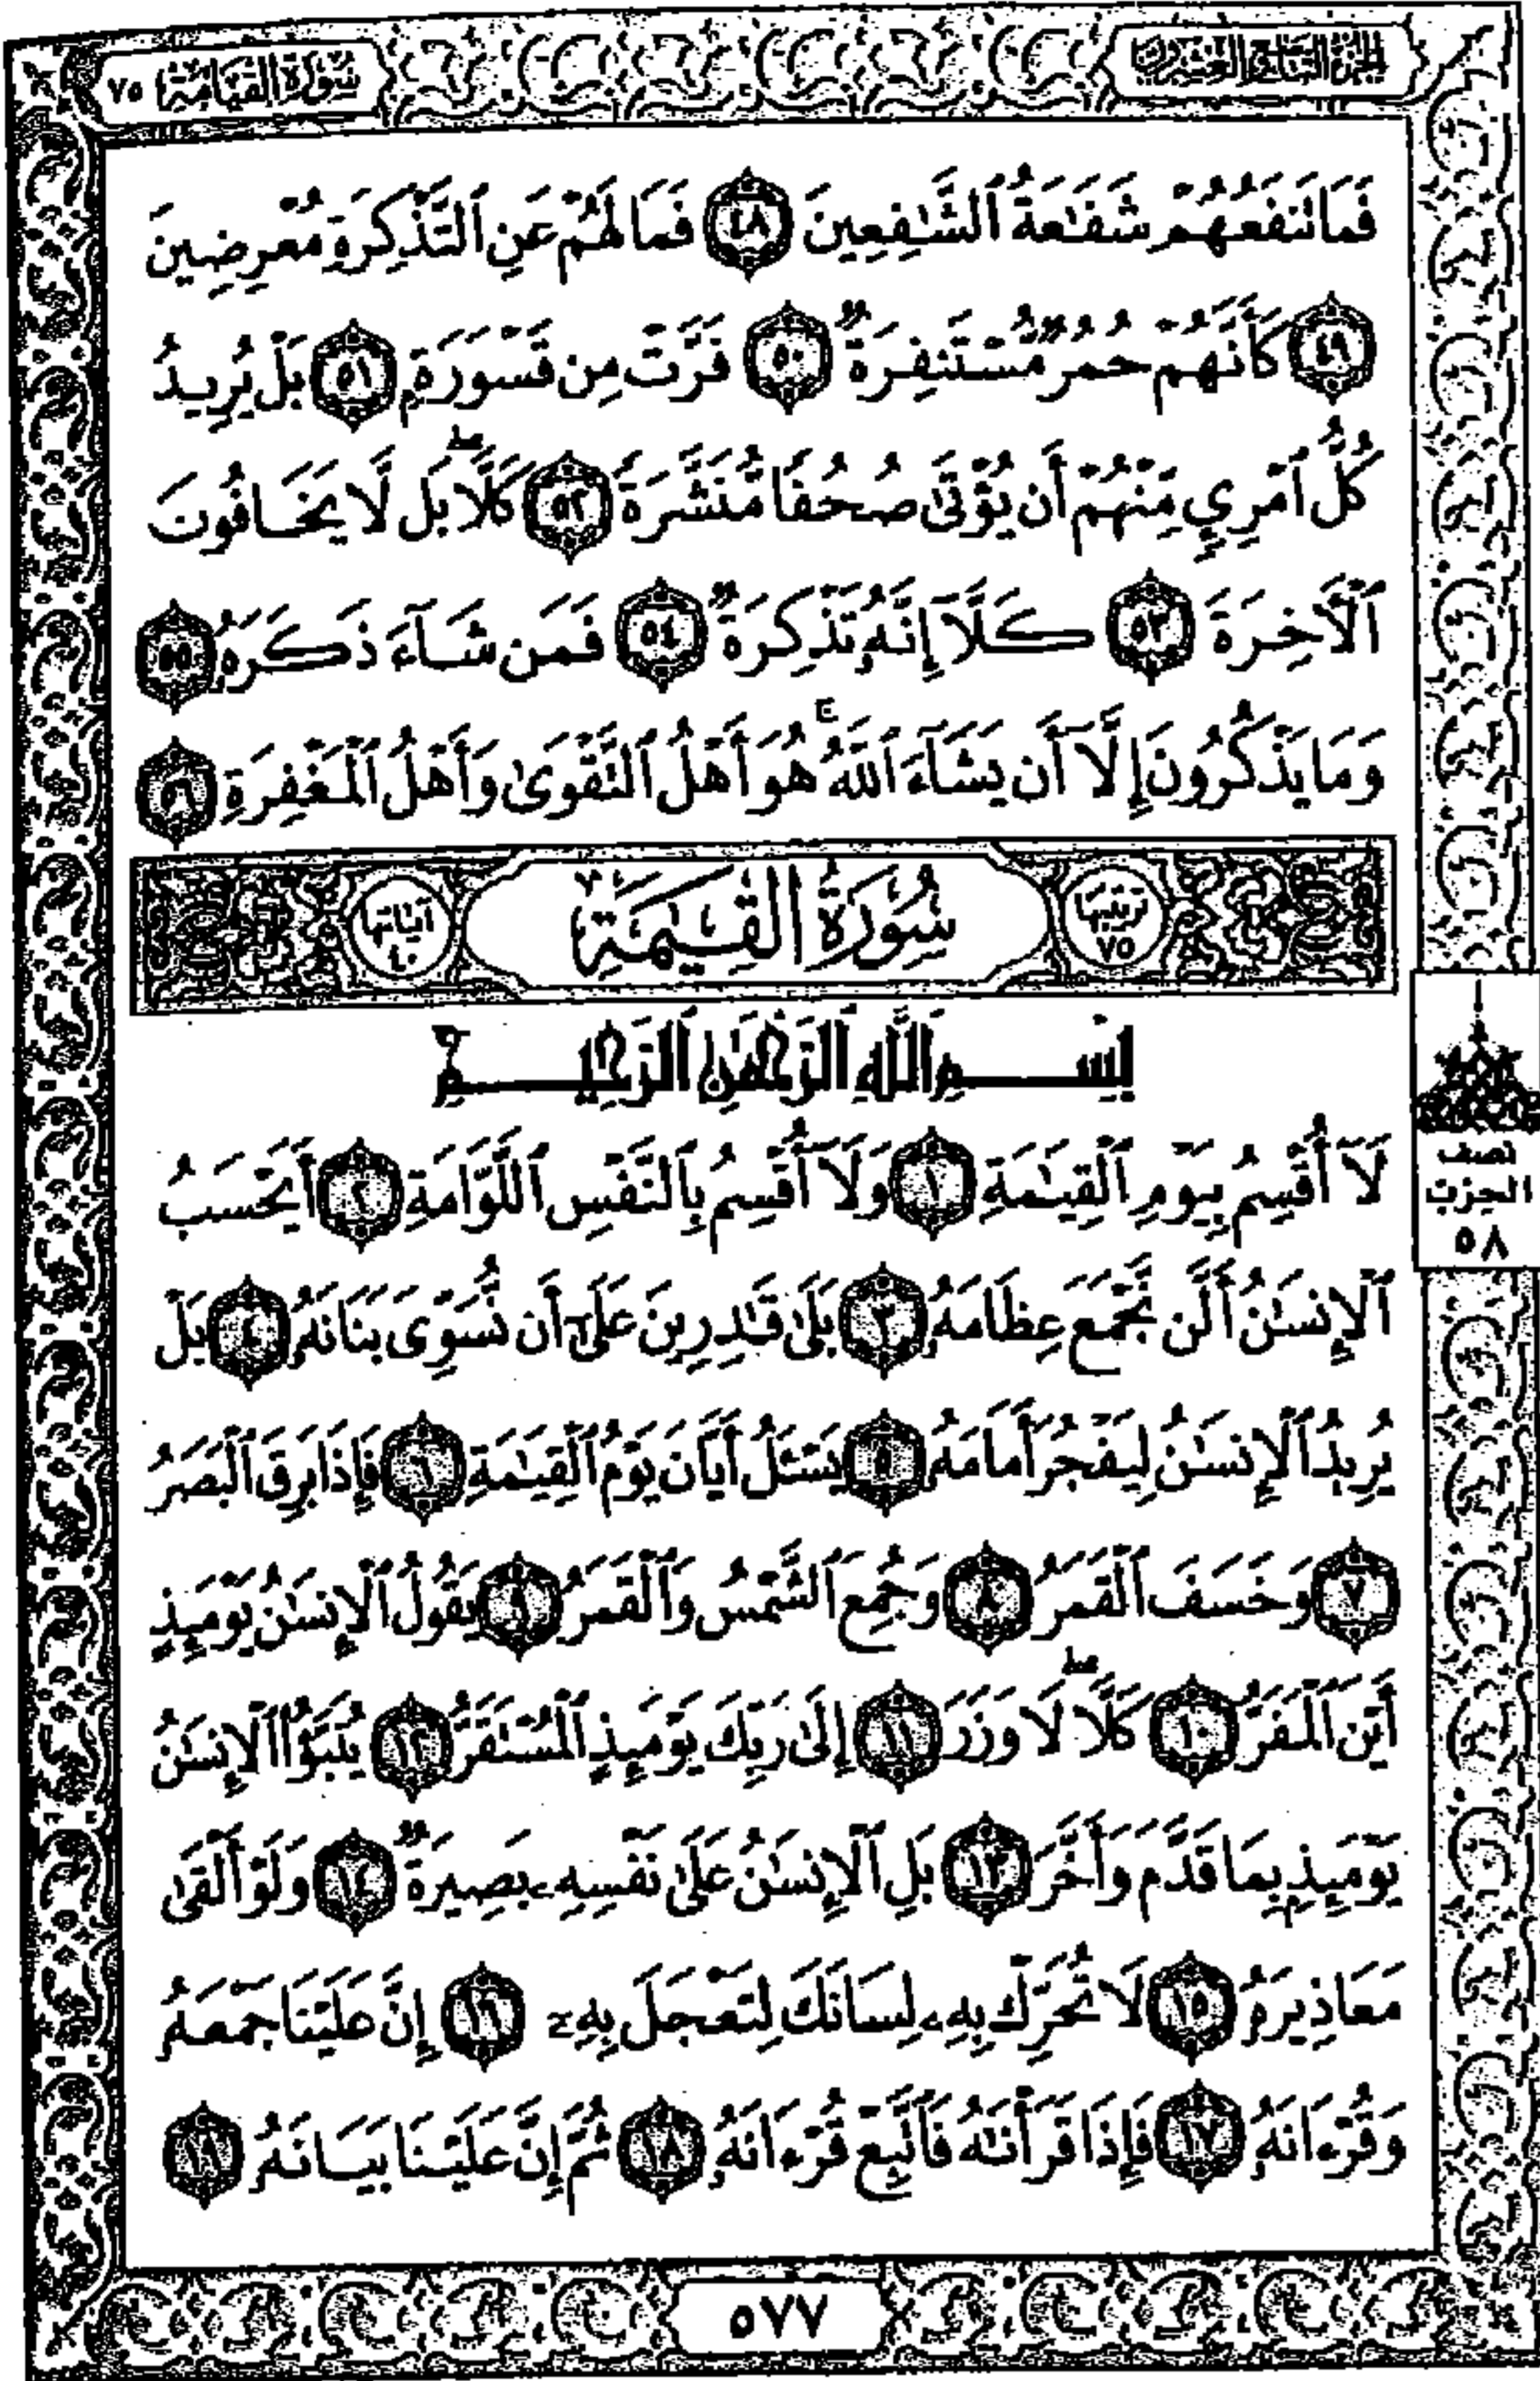 الجزء التاسع والعشرون
سورة القيامة ٧٥
فَمَا تَنفَعُهُمْ شَفَٰعَةُ ٱلشَّٰفِعِينَ ٤٨ فَمَا لَهُمْ عَنِ ٱلتَّذْكِرَةِ مُعْرِضِينَ
٤٩ كَأَنَّهُمْ حُمُرٌ مُّسْتَنفِرَةٌ ٥٠ فَرَّتْ مِن قَسْوَرَةٍ ٥١ بَلْ يُرِيدُ
كُلُّ ٱمْرِئٍ مِّنْهُمْ أَن يُؤْتَىٰ صُحُفًا مُّنَشَّرَةً ٥٢ كَلَّا ۖ بَل لَّا يَخَافُونَ
ٱلْأٓخِرَةَ ٥٣ كَلَّآ إِنَّهُۥ تَذْكِرَةٌ ٥٤ فَمَن شَآءَ ذَكَرَهُۥ ٥٥
وَمَا يَذْكُرُونَ إِلَّآ أَن يَشَآءَ ٱللَّهُ ۚ هُوَ أَهْلُ ٱلتَّقْوَىٰ وَأَهْلُ ٱلْمَغْفِرَةِ ٥٦
ترتيبها ٧٥
سُورَةُ ٱلْقِيَٰمَةِ
آياتها ٤٠
بِسْمِ ٱللَّهِ ٱلرَّحْمَٰنِ ٱلرَّحِيمِ
لَآ أُقْسِمُ بِيَوْمِ ٱلْقِيَٰمَةِ ١ وَلَآ أُقْسِمُ بِٱلنَّفْسِ ٱللَّوَّامَةِ ٢ أَيَحْسَبُ
ٱلْإِنسَٰنُ أَلَّن نَّجْمَعَ عِظَامَهُۥ ٣ بَلَىٰ قَٰدِرِينَ عَلَىٰٓ أَن نُّسَوِّىَ بَنَانَهُۥ ٤ بَلْ
يُرِيدُ ٱلْإِنسَٰنُ لِيَفْجُرَ أَمَامَهُۥ ٥ يَسْـَٔلُ أَيَّانَ يَوْمُ ٱلْقِيَٰمَةِ ٦ فَإِذَا بَرِقَ ٱلْبَصَرُ
٧ وَخَسَفَ ٱلْقَمَرُ ٨ وَجُمِعَ ٱلشَّمْسُ وَٱلْقَمَرُ ٩ يَقُولُ ٱلْإِنسَٰنُ يَوْمَئِذٍ
أَيْنَ ٱلْمَفَرُّ ١٠ كَلَّا ۖ لَا وَزَرَ ١١ إِلَىٰ رَبِّكَ يَوْمَئِذٍ ٱلْمُسْتَقَرُّ ١٢ يُنَبَّؤُا۟ ٱلْإِنسَٰنُ
يَوْمَئِذٍۭ بِمَا قَدَّمَ وَأَخَّرَ ١٣ بَلِ ٱلْإِنسَٰنُ عَلَىٰ نَفْسِهِۦ بَصِيرَةٌ ١٤ وَلَوْ أَلْقَىٰ
مَعَاذِيرَهُۥ ١٥ لَا تُحَرِّكْ بِهِۦ لِسَانَكَ لِتَعْجَلَ بِهِۦٓ ١٦ إِنَّ عَلَيْنَا جَمْعَهُۥ
وَقُرْءَانَهُۥ ١٧ فَإِذَا قَرَأْنَٰهُ فَٱتَّبِعْ قُرْءَانَهُۥ ١٨ ثُمَّ إِنَّ عَلَيْنَا بَيَانَهُۥ ١٩
نصف
الحزب
٥٨
٥٧٧